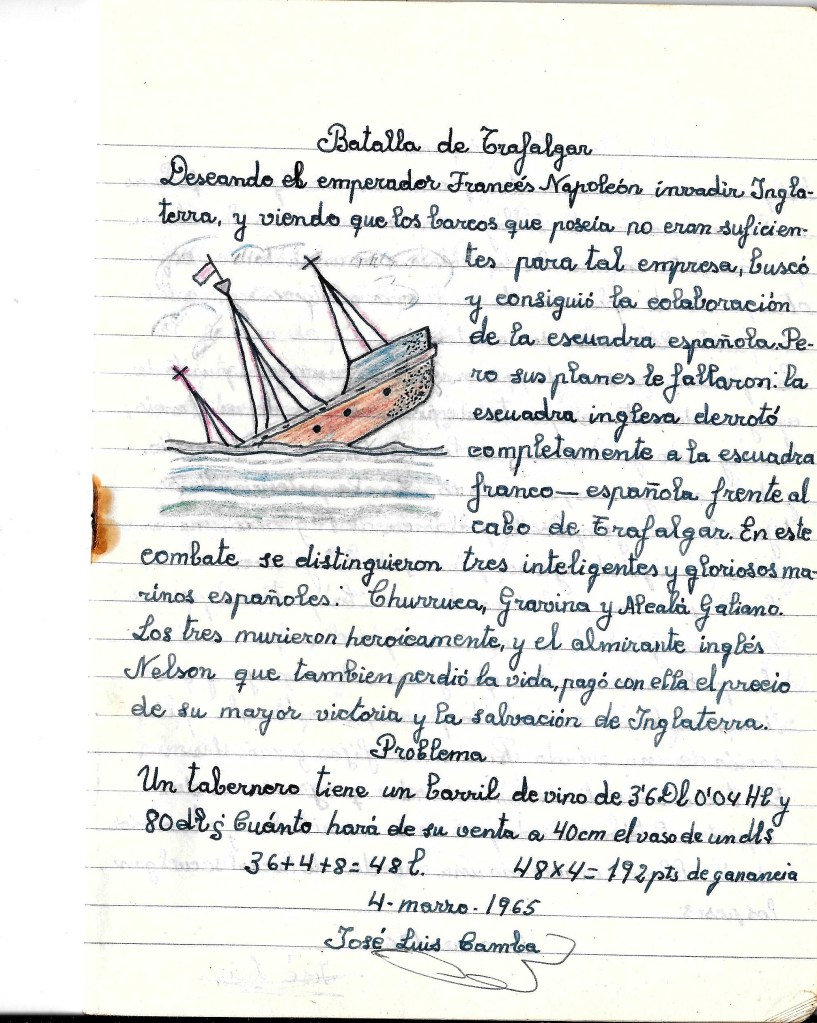 Batalla de Trafalgar
Deseando el emperador Francés Napoleón invadir Ingla-
terra, y viendo que los barcos que poseía no eran suficien-
tes para tal empresa, buscó
y consiguió la colaboración
de la escuadra española. Pe-
ro sus planes le fallaron: la
escuadra inglesa derrotó
completamente a la escuadra
franco—española frente al
cabo de Trafalgar. En este
combate se distinguieron tres inteligentes y gloriosos ma-
rinos españoles: Churruca, Gravina y Alcalá Galiano.
Los tres murieron heroicamente, y el almirante inglés
Nelson que tambien perdió la vida, pagó con ella el precio
de su mayor victoria y la salvación de Inglaterra.
Problema
Un tabernero tiene un barril de vino de 3'6Dl 0'04Hl y
80dl ¿Cuánto hará de su venta a 40cm el vaso de un dl?
36+4+8=48l. 48x4=192pts de ganancia
4-marzo-1965
José Luis Camba